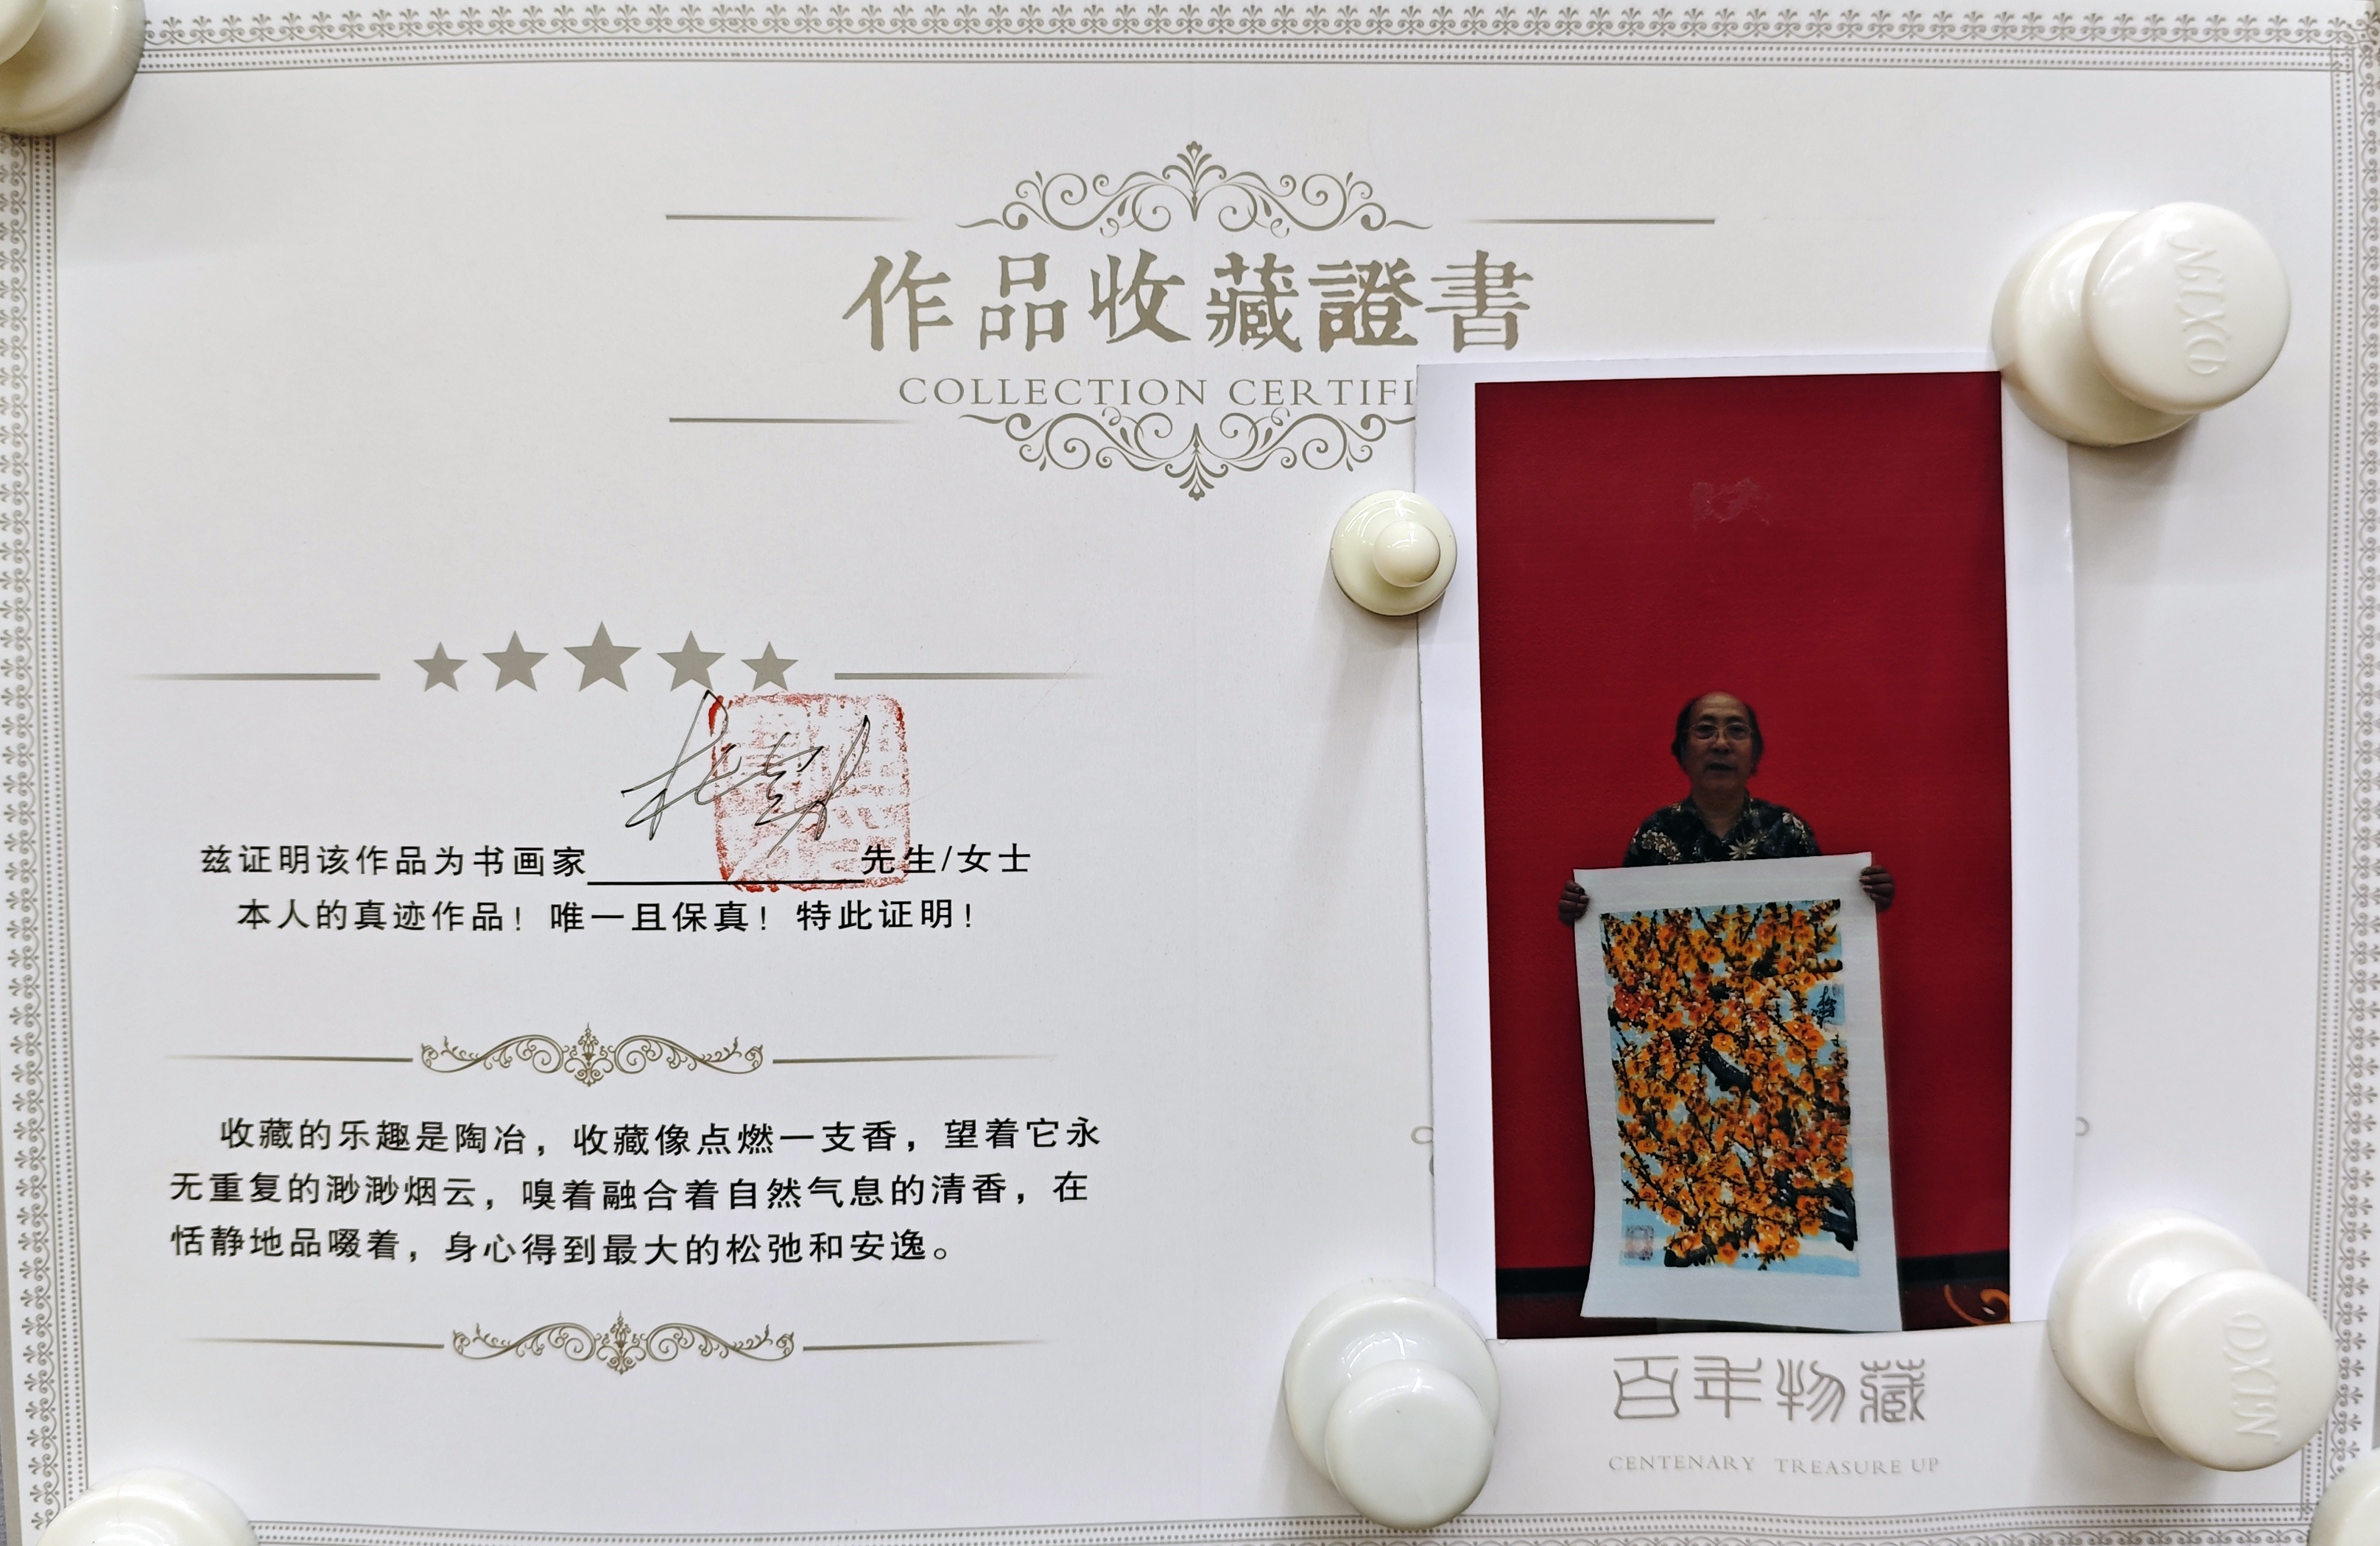 作品收藏證書
COLLECTION CERTIFI
兹证明该作品为书画家 先生/女士
本人的真迹作品！唯一且保真！特此证明！
收藏的乐趣是陶冶，收藏像点燃一支香，望着它永
无重复的渺渺烟云，嗅着融合着自然气息的清香，在
恬静地品啜着，身心得到最大的松弛和安逸。
百年物藏
CENTENARY TREASURE UP
DXIN
DXIN